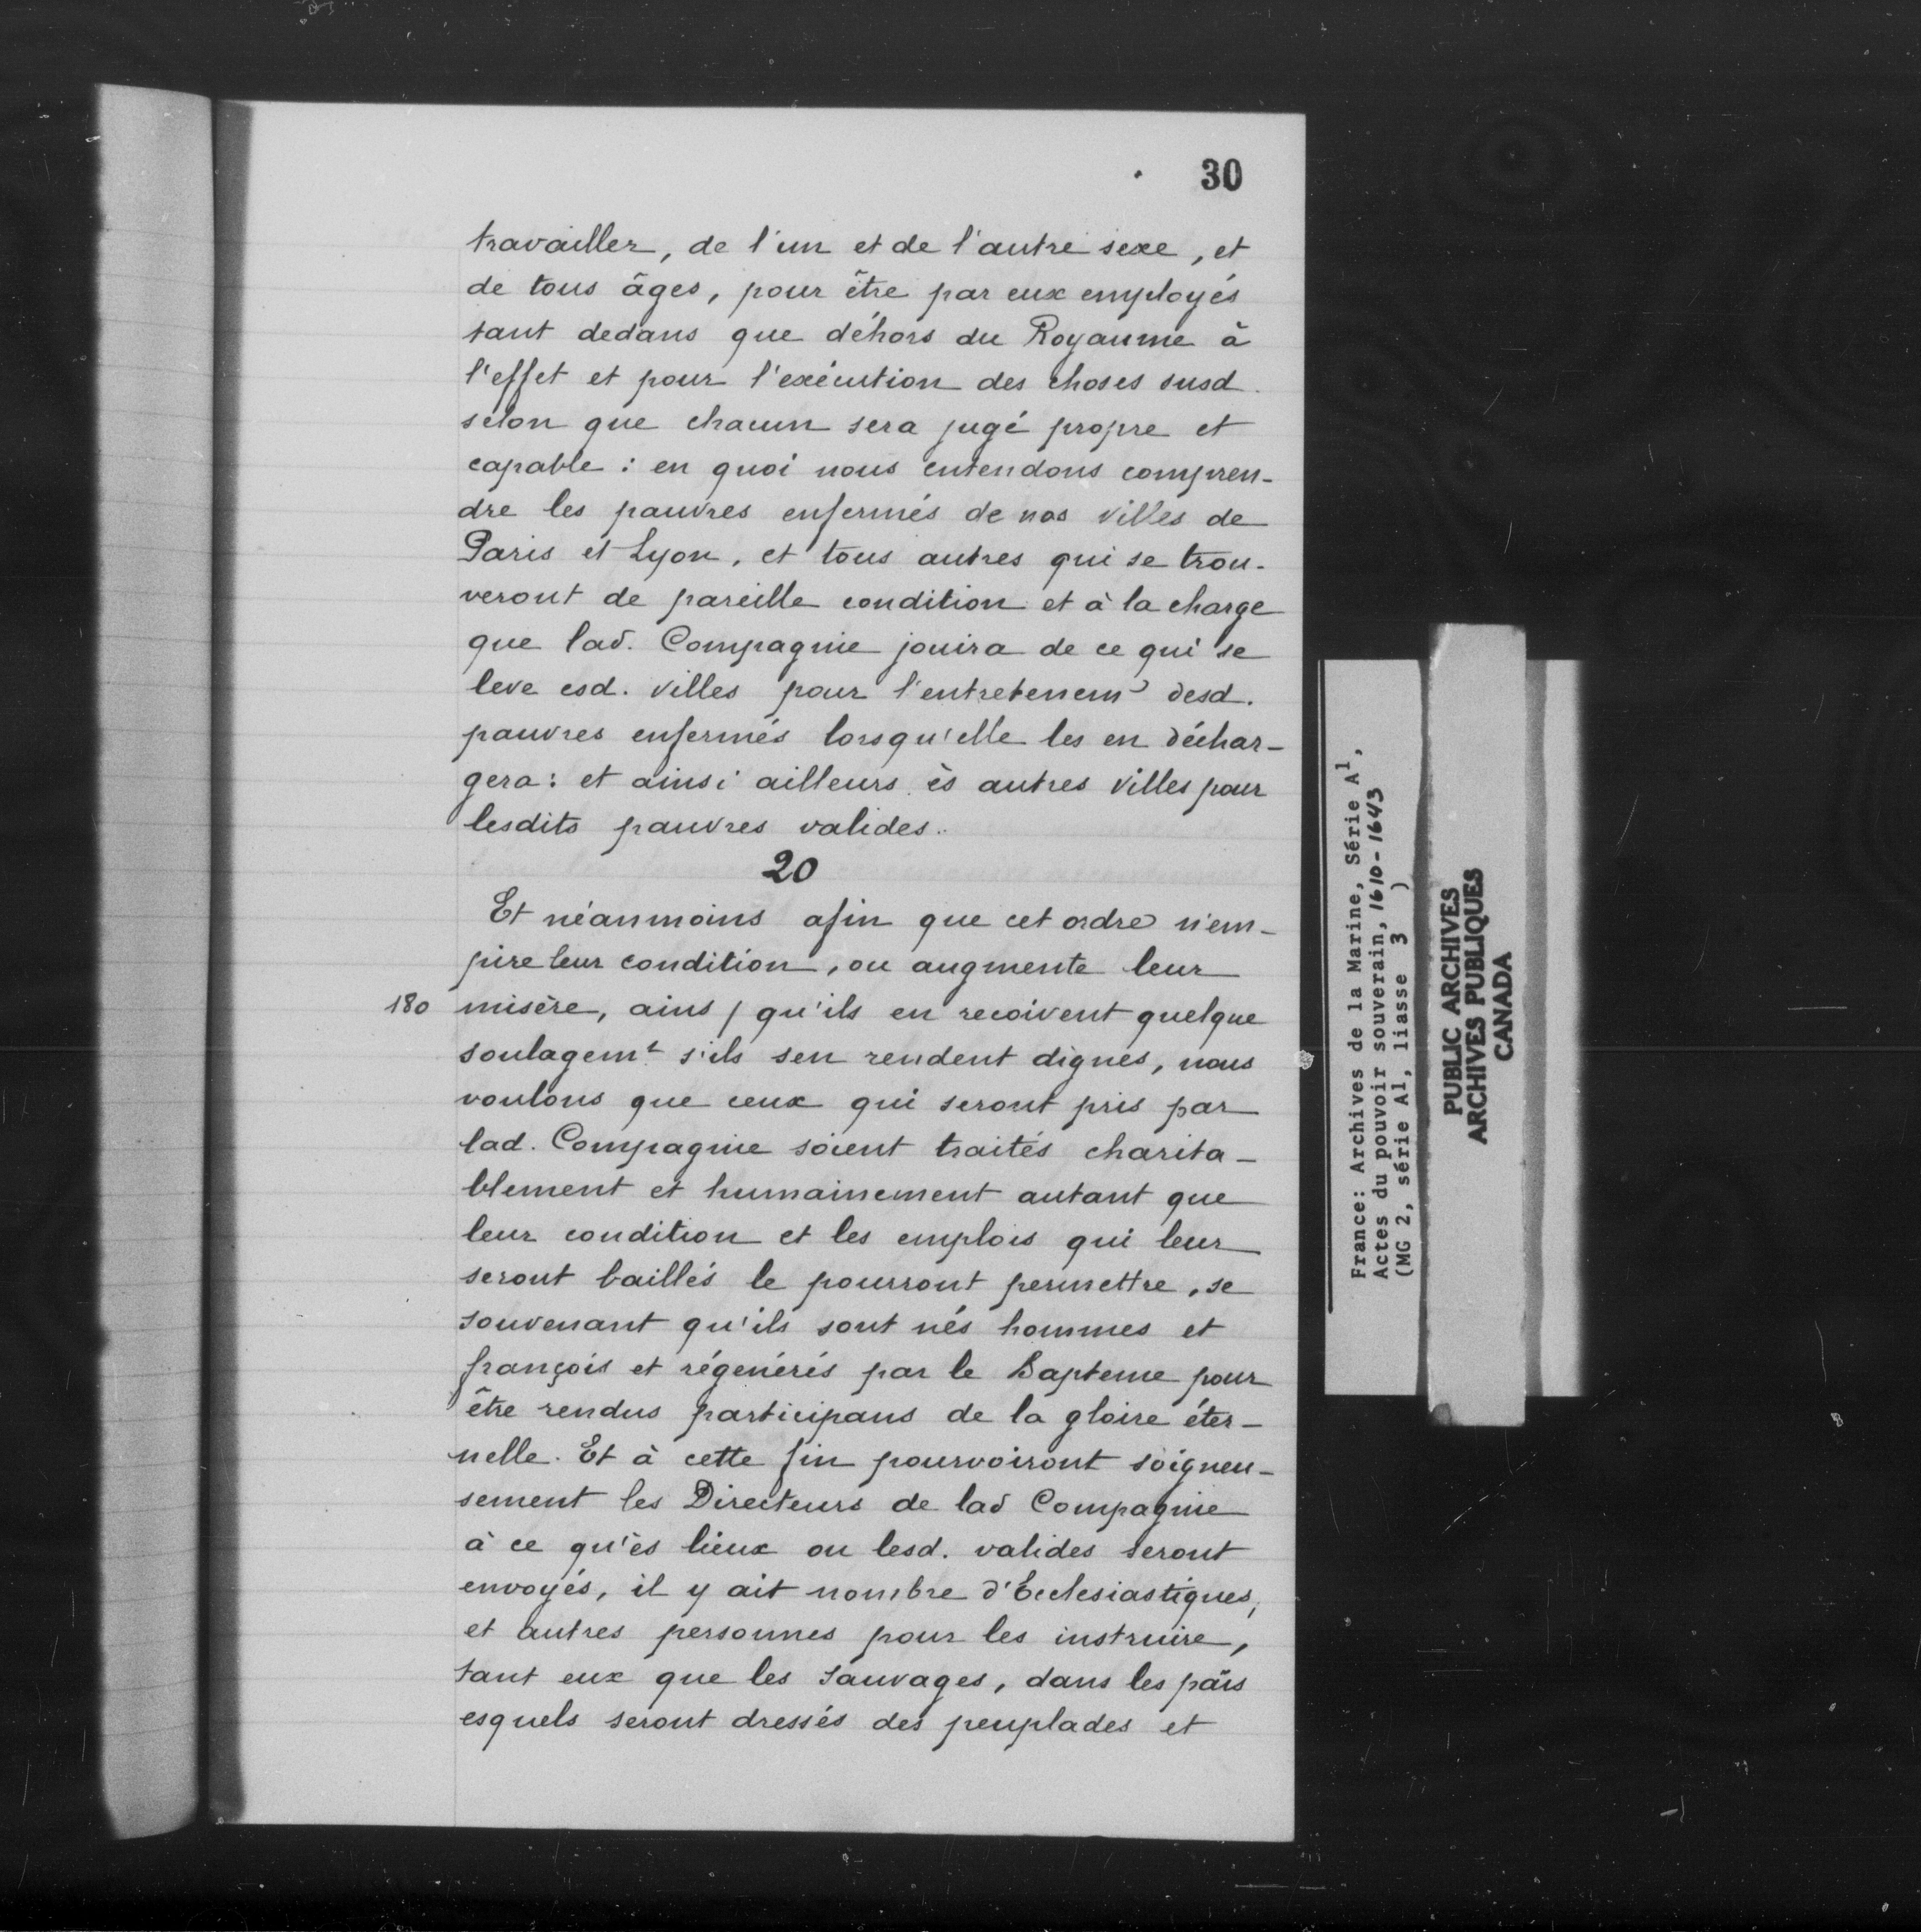 30
travailler, de l'un et de l'autre sexe, et
de tous âges, pour être par eux employés
tant dedans que déhors du Royaume à
l'effet et pour l'exécution des choses susd.
selon que chacun sera jugé propre et
capable : en quoi nous entendons compren-
dre les pauvres enfermés de nos villes de
Paris et Lyon, et tous autres qui se trou-
veront de pareille condition et à la charge
que lad. Compagnie jouira de ce qui se
leve esd. villes pour l'entretenem^t desd.
pauvres enfermés lorsqu'elle les en déchar-
gera : et ainsi ailleurs ès autres villes pour
lesdits pauvres valides.
20
Et néanmoins afin que cet ordre n'em-
pire leur condition, ou augmente leur
180 misère, ains / qu'ils en recoivent quelque
soulagem^t s'ils sen rendent dignes, nous
voulons que ceux qui seront pris par
lad. Compagnie soient traités charita-
blement et humainement autant que
leur condition et les emplois qui leur
seront baillés le pourront permettre, se
souvenant qu'ils sont nés hommes et
françois et régénérés par le Bapteme pour
être rendus participans de la gloire éter-
nelle. Et à cette fin pourvoiront soigneu-
sement les Directeurs de lad Compagnie
à ce qu'ès lieux ou lesd. valides seront
envoyés, il y ait nombre d'Ecclesiastiques,
et autres personnes pour les instruire,
tant eux que les sauvages, dans les païs
esquels seront dressés des peuplades et
France: Archives de la Marine, Série A^1,
Actes du pouvoir souverain, 1610-1643
(MG 2, série A1, liasse 3 )
PUBLIC ARCHIVES
ARCHIVES PUBLIQUES
CANADA